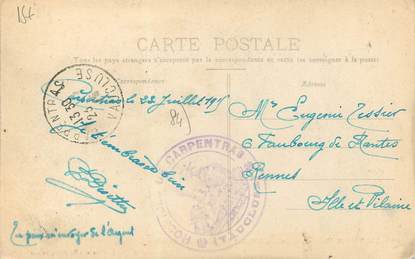 154
CARTE POSTALE
Tous les pays étrangers n'acceptent pas la correspondance au recto (se renseigner à la poste)
Correspondance
Adresse
CARPENTRAS
VAUCLUSE
Carpentras le 22 Juillet 191
84
Je t'embrasse bien
Mme Eugenie Tessier
6 Faubourg de Nantes
Rennes
Ille et Vilaine
CARPENTRAS
HOPITAL
Tu peux m'envoyer de l'Argent